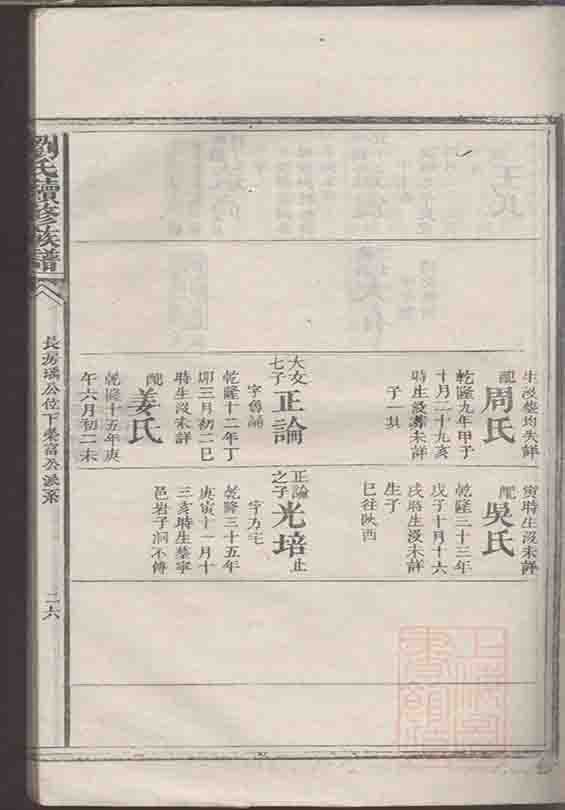 生沒塟均失詳
配周氏
乾隆九年甲子
十月二十九亥
時生沒塟未詳
子一其
大文七子正論
字魯誦
乾隆十二年丁
卯三月初二巳
時生沒未詳
配姜氏
乾隆十五年庚
午六月初二未
寅時生沒未詳
配吳氏
乾隆三十三年
戊子十月十六
戌時生沒未詳
生子
巳往陝西
正論之子光培止
字方宅
乾隆三十五年
庚寅十一月十
三亥時生塟寧
邑岩子洞不傳
劉氏續修族譜
長房璚公位下榮富公派系
二六
上海圖書館藏